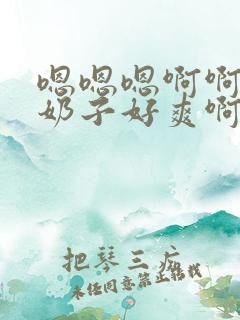 嗯嗯嗯啊啊
奶子好爽啊
把琴三疯
未经同意禁止转载